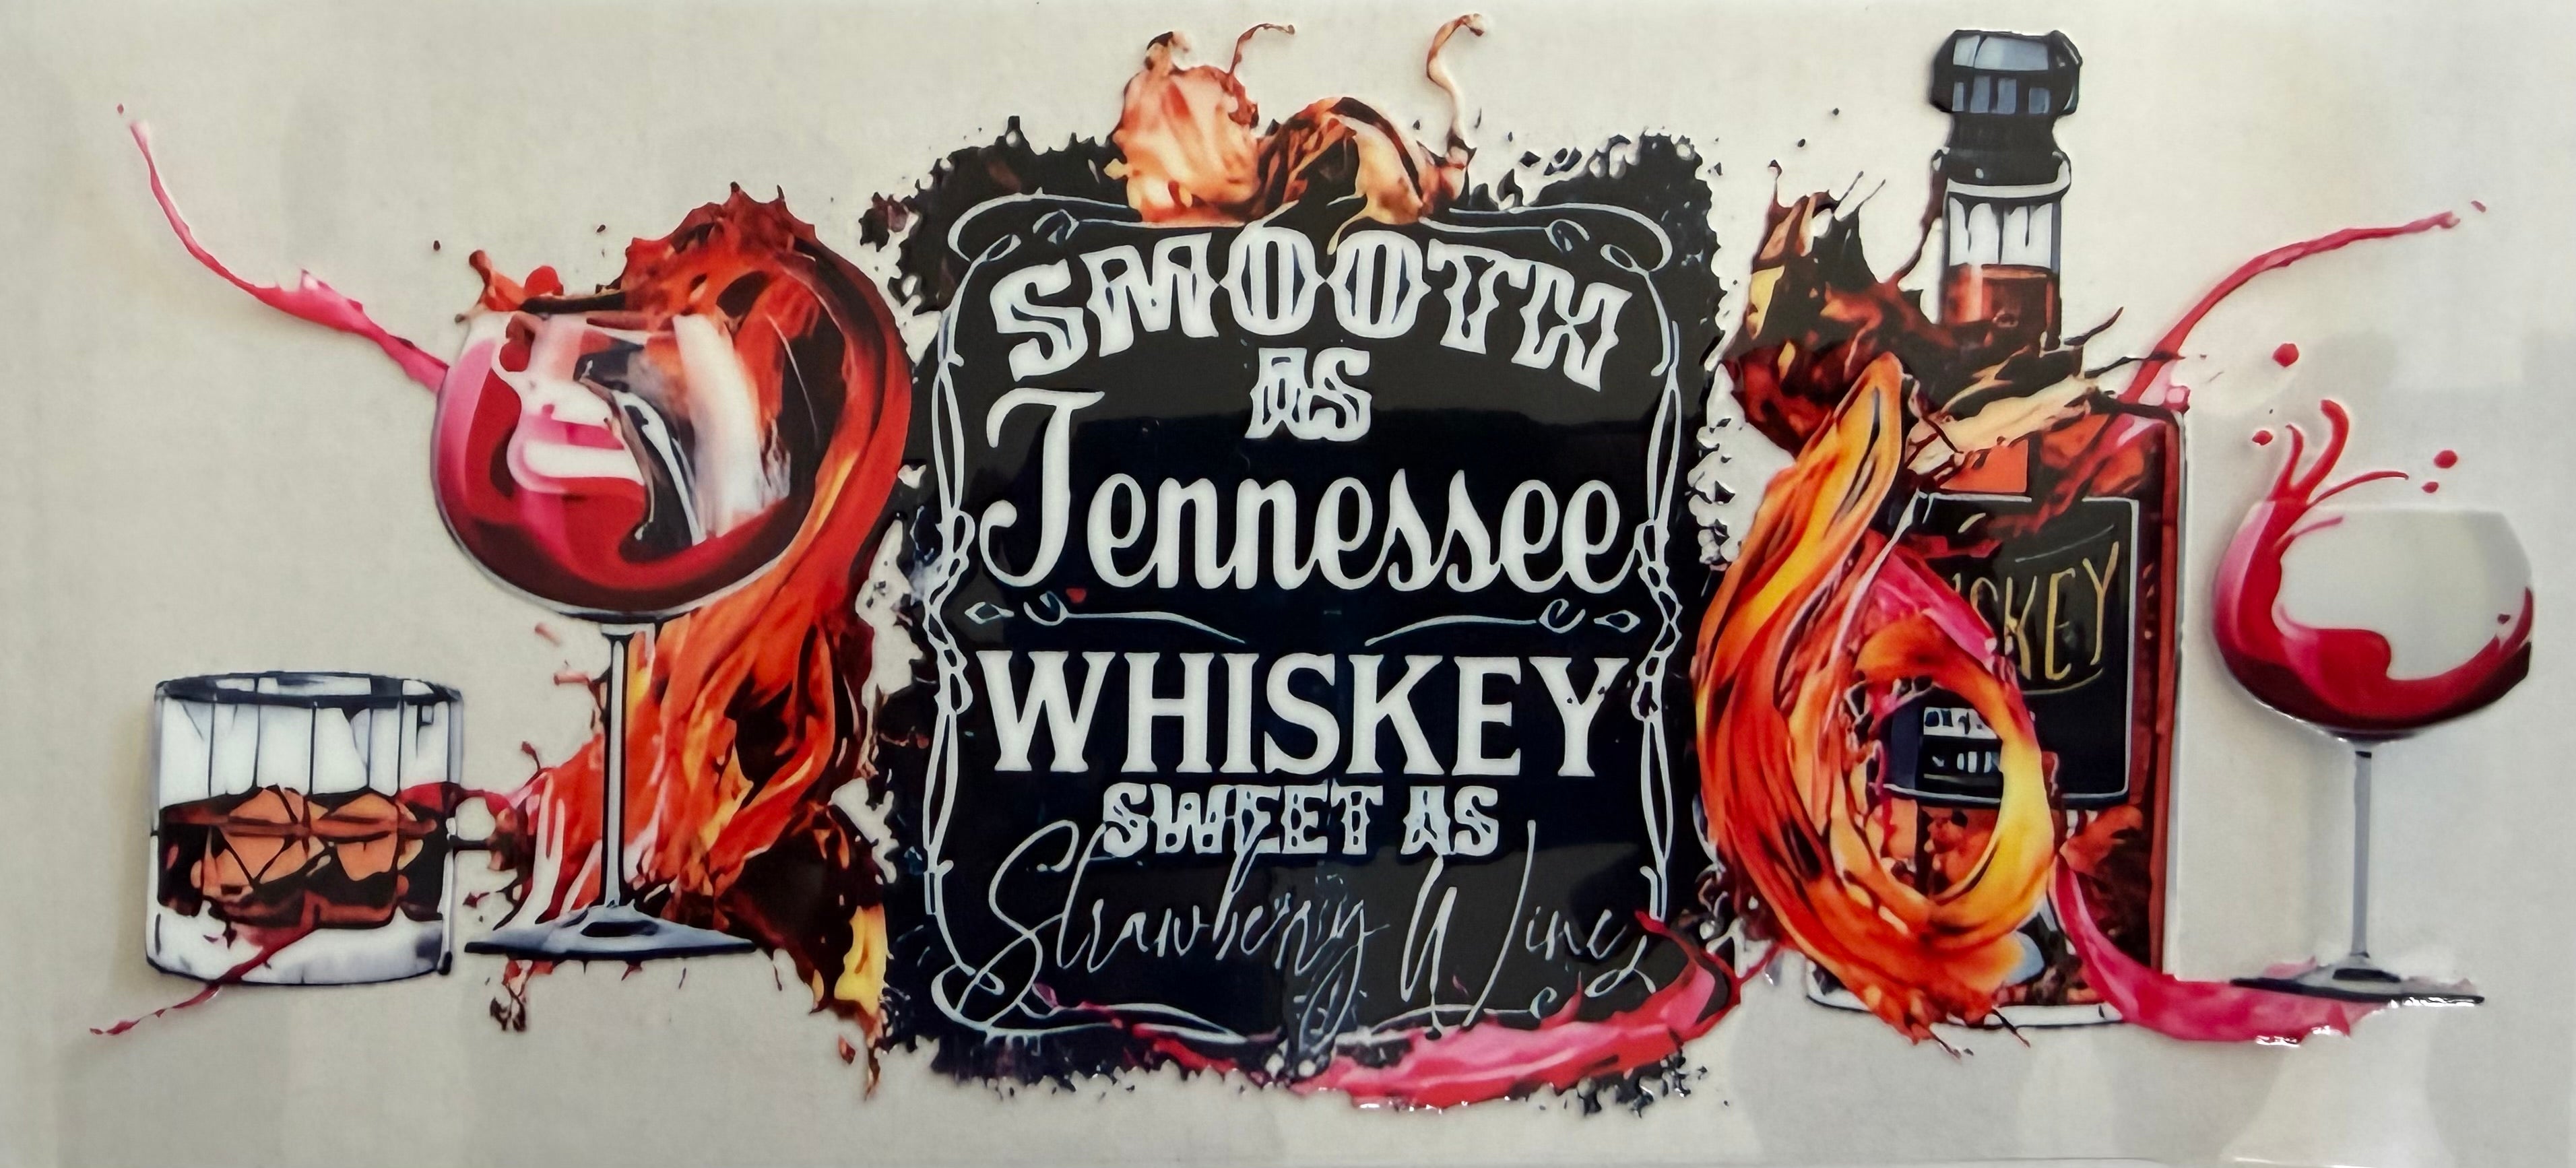 SMOOTH
AS
Tennessee
WHISKEY
SWEET AS
Strawberry Wine